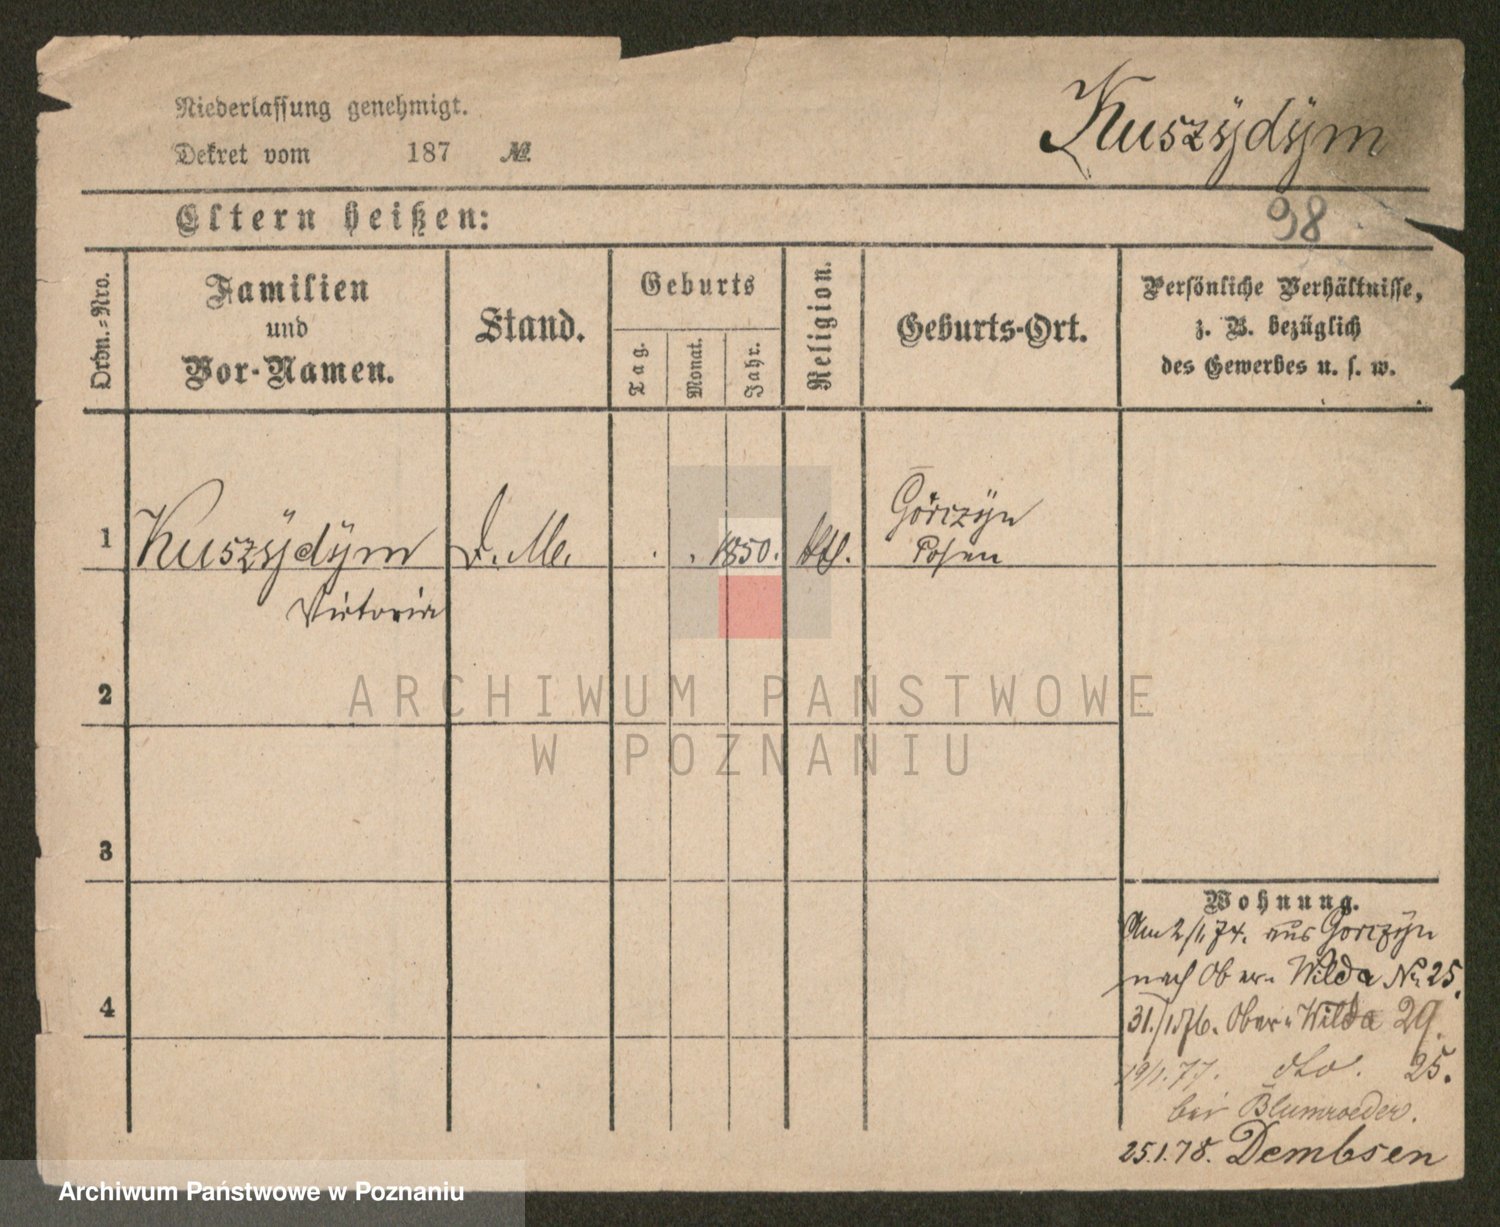 Niederlassung genehmigt.
Dekret vom 187 №
Kuszÿdÿm
Eltern heißen:
98
Ordn.-Nro.
Familien
und
Vor-Namen.
Stand.
Geburts
Tag.
Monat.
Jahr.
Religion.
Geburts-Ort.
Persönliche Verhältnisse,
z. B. bezüglich
des Gewerbes u. s. w.
1 Kuszÿdÿm D. M. 1850. ktl. Görczÿn
Posen
Victoria
2
ARCHIWUM PAŃSTWOWE
W POZNANIU
3
Wohnung.
Am 2/1. 74. aus Gorczÿn
nach Ober-Wilda No 25.
4
31./1. 76. Ober-Wilda 29.
19/1. 77. dto. 25.
bei Blumroeder.
25.1.78. Dembsen
Archiwum Państwowe w Poznaniu